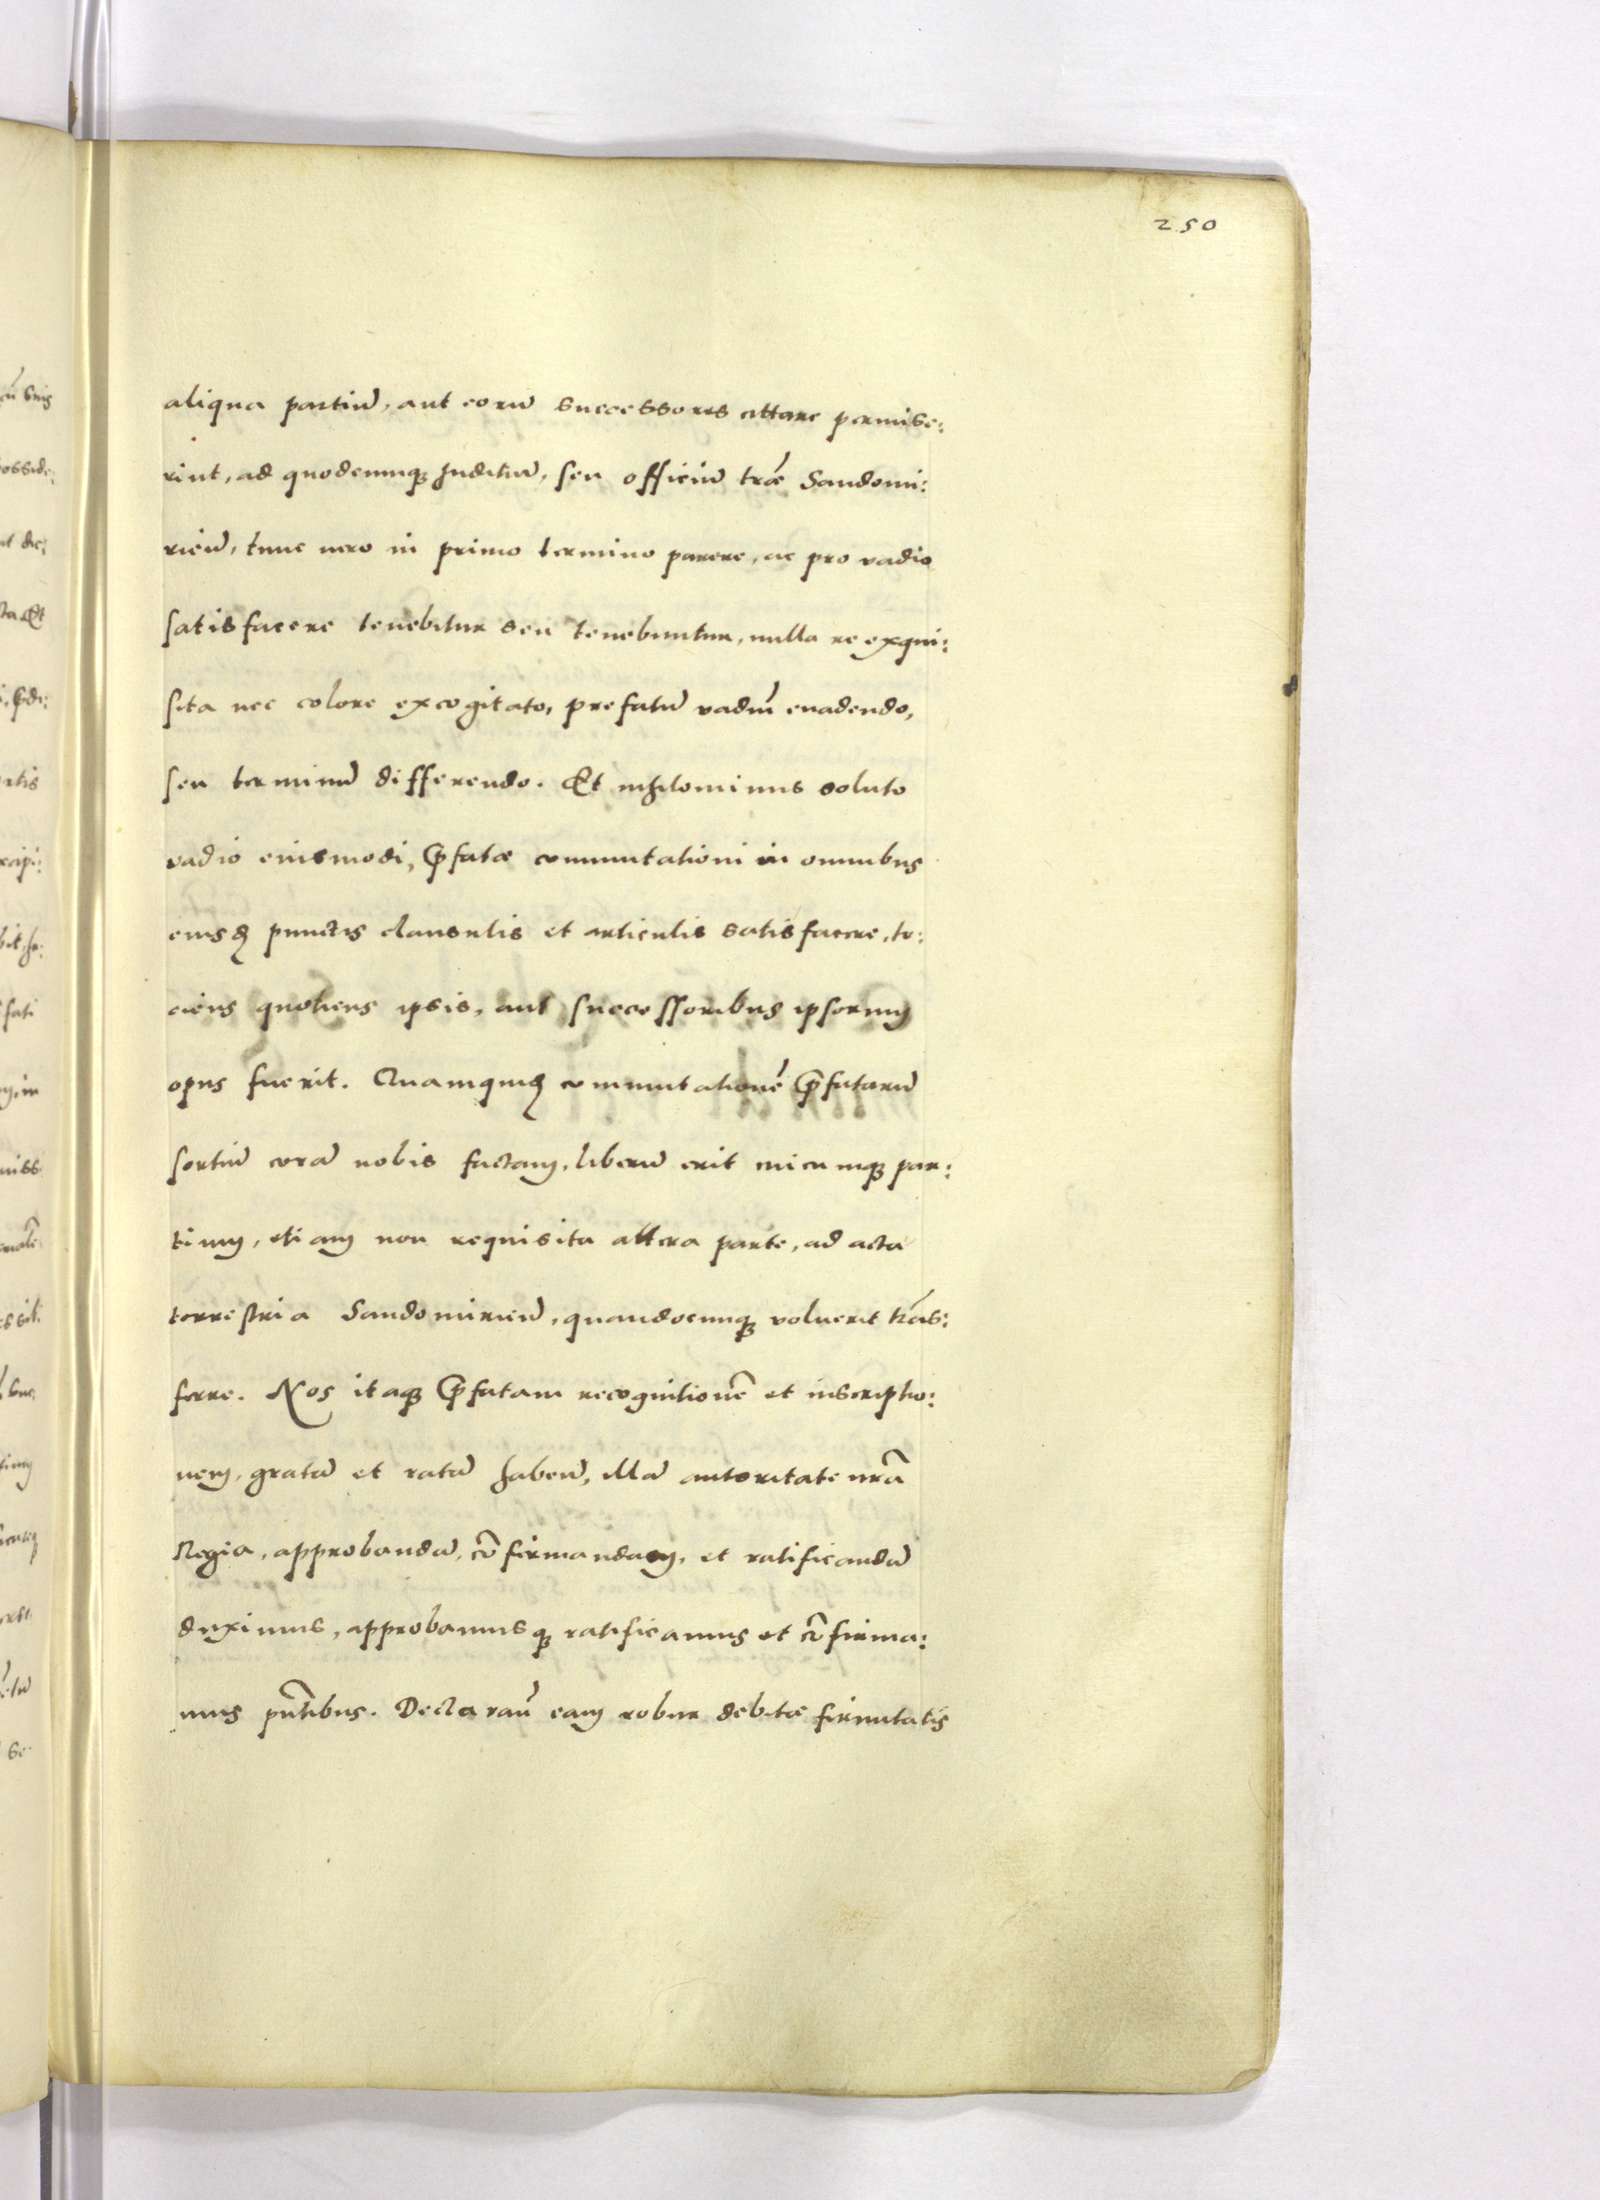 250
aliqua partiū, aut eorū successores cittare permise:
rint, ad quodcunq̨ Juditiū, seu officiū trāe Sandomi:
rieñ, tunc uero in primo termino parere, ac pro vadio
satisfacere tenebitur seu tenebuntur, nulla re exqui:
sita nec colore excogitato, prefatū vadiū euadendo,
seu terminū differendo. Et nihilominus soluto
vadio eiusmodi, p̄fatæ commutationi in omnibus
eiusq̨ punctis clausulis et articulis satisfacere, to:
ciens quotiens ipsis, aut successoribus ipsorum
opus fuerit. Quamquidē commutationē p̄fatarū
sortiū corā nobis factam, liberū erit cuicunq̨ par:
tium, etiam non requisita altera parte, ad acta
terrestria Sandomirieñ, quandocunq̨ voluerit trās:
ferre. Nos itaq̨ p̄fatam recognitionē et inscriptio:
nem, gratā et ratā habeñ, illā autoritate nrā
Regia, approbandā, cōfirmandam, et ratificandā
duximus, approbamusq̨ ratificamus et cōfirma:
mus pn̄tibus. Declarañ eam robur debitæ firmitatis